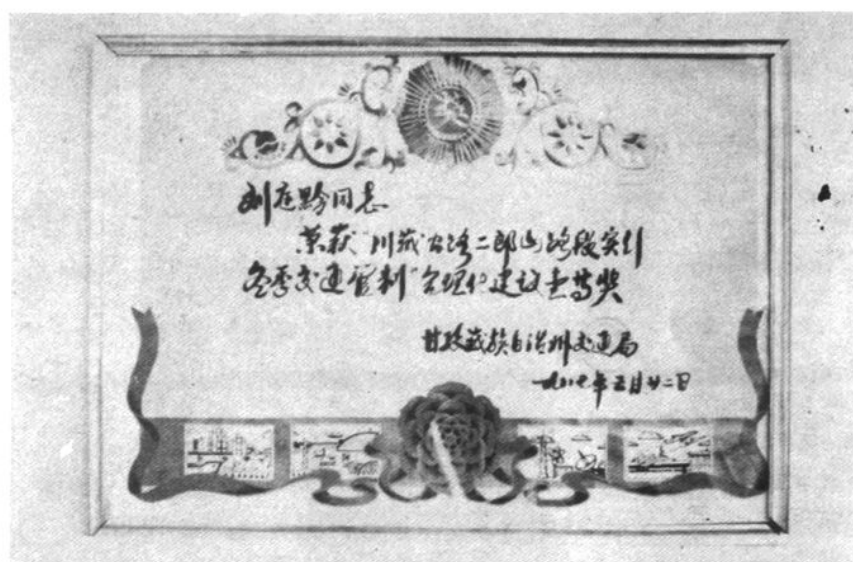 刘庭黔同志
荣获"川藏公路二郎山路段实行
冬季交通管制"合理化建议壹等奖
甘孜藏族自治州交通局
一九八七年五月廿二日